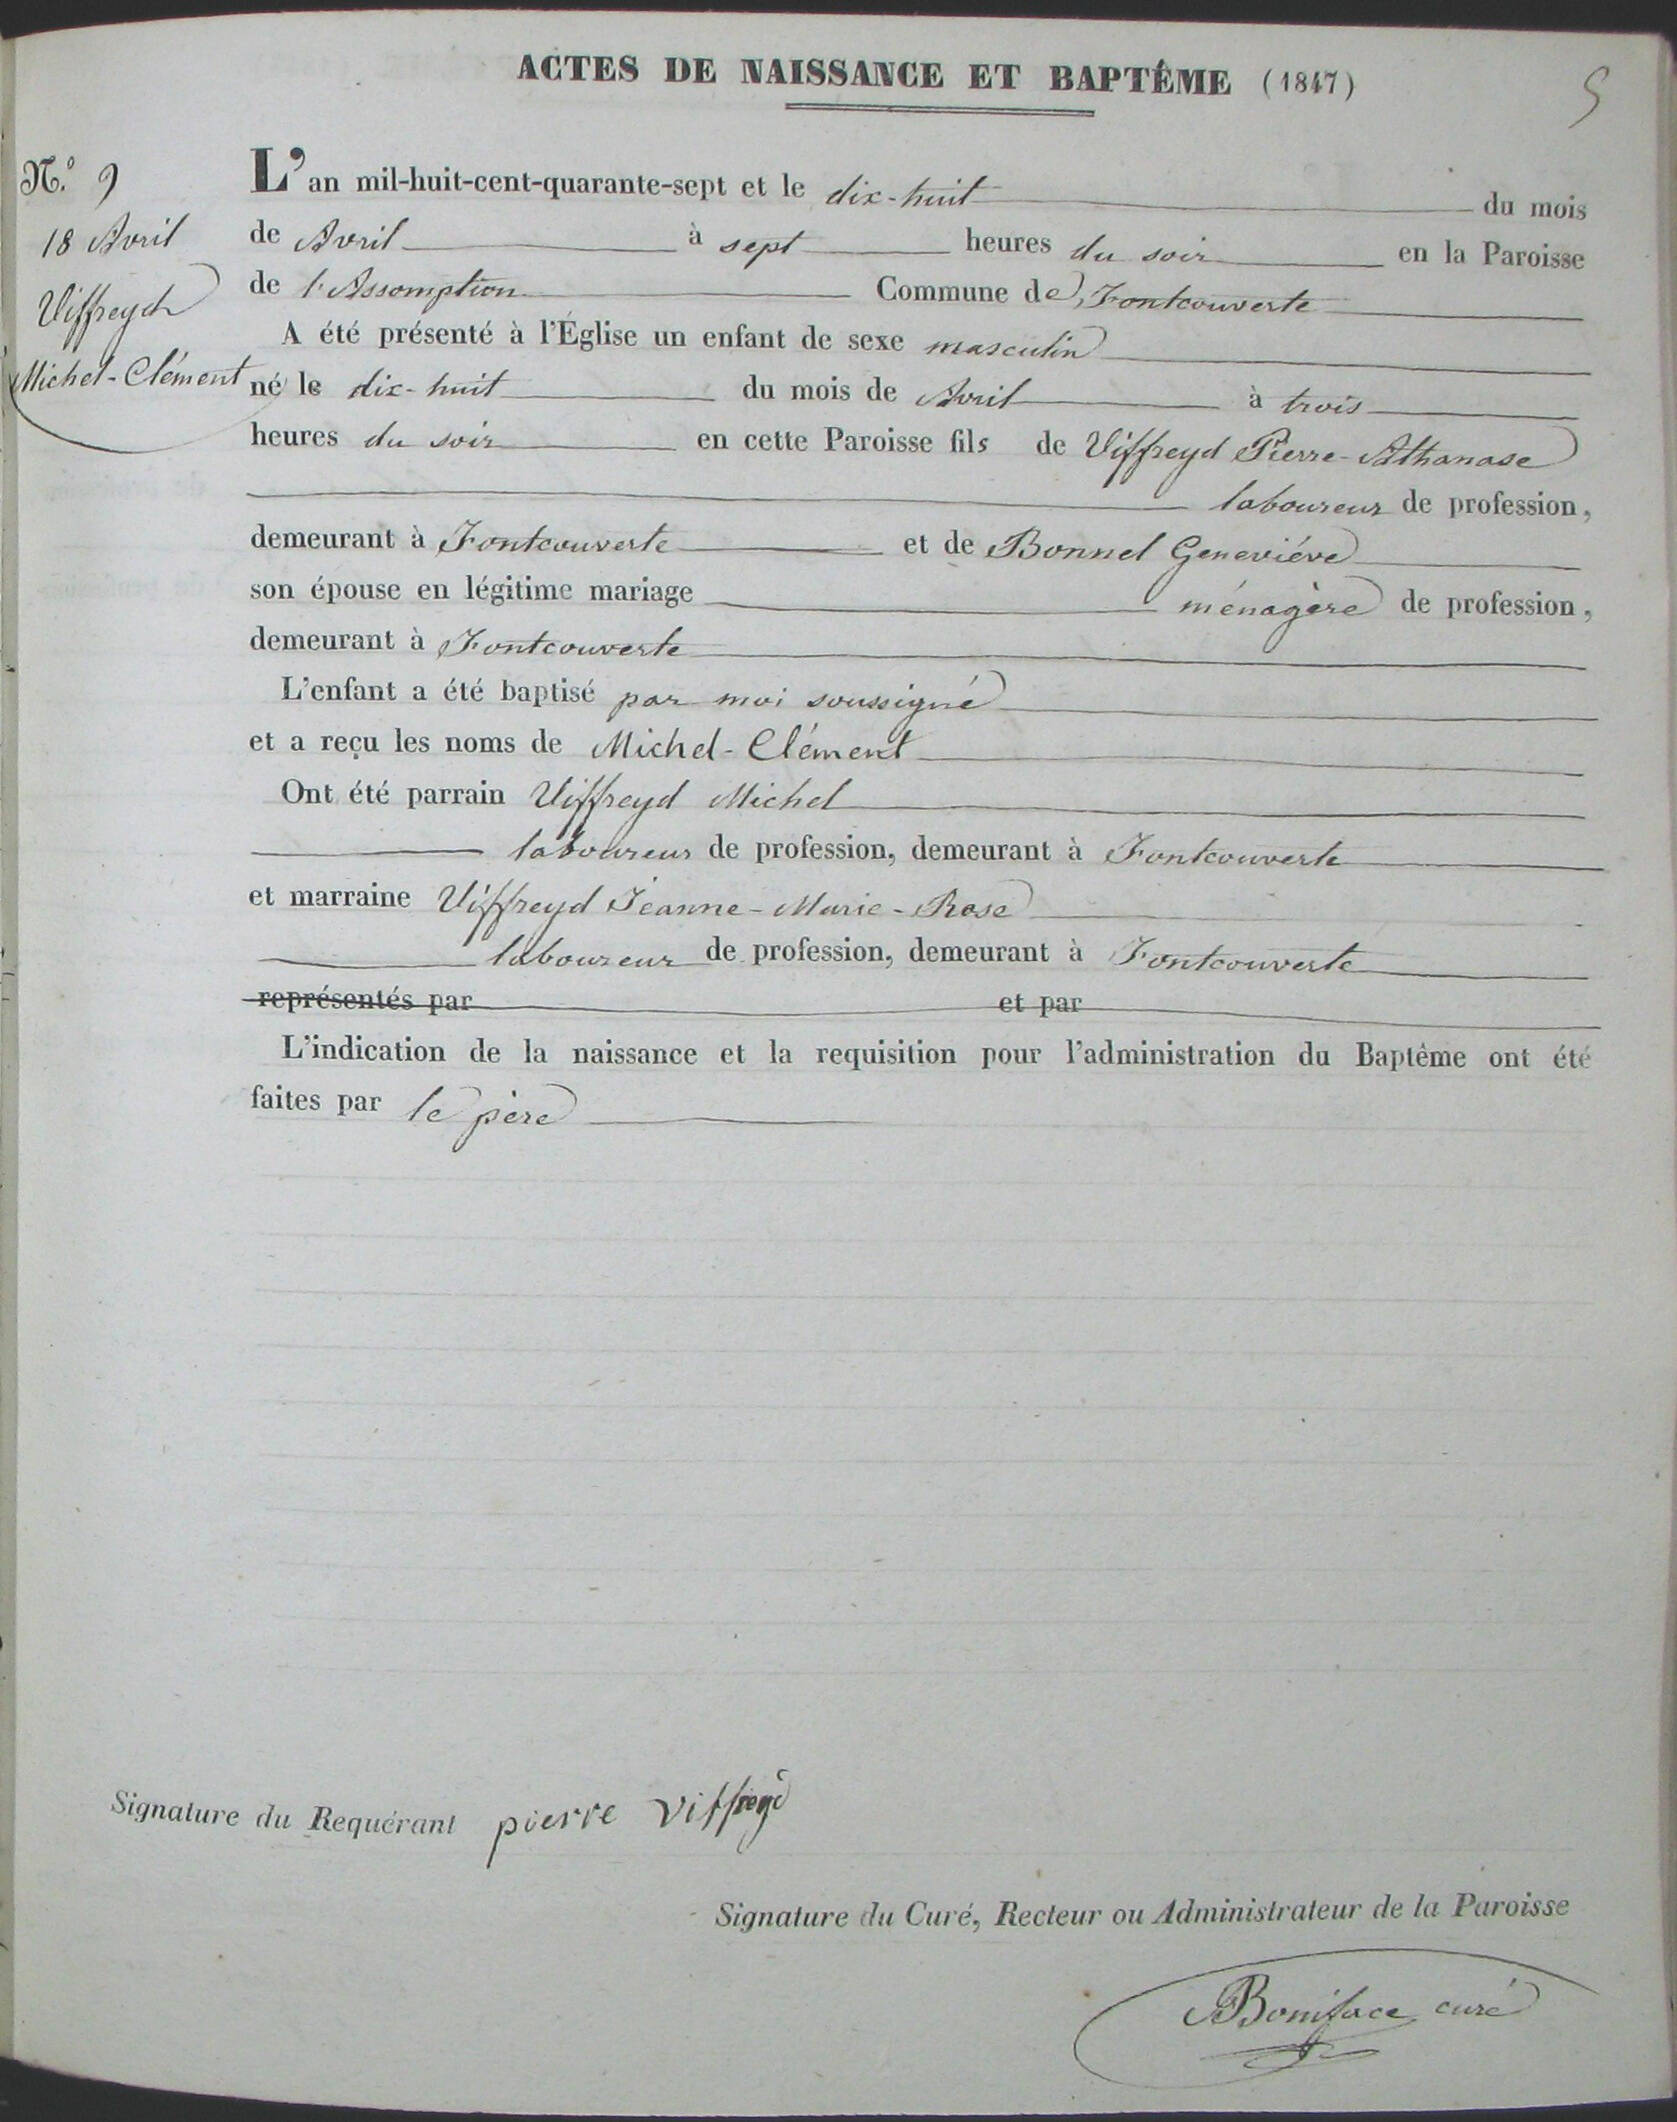 ACTES DE NAISSANCE ET BAPTÊME (1847)
5
N.º 9
18 Avril
Viffreyd
Michel-Clément
L'an mil-huit-cent-quarante-sept et le dix-huit du mois
de Avril à sept heures du soir en la Paroisse
de l'Assomption Commune de Fontcouverte
A été présenté à l'Église un enfant de sexe masculin
né le dix-huit du mois de Avril à trois
heures du soir en cette Paroisse fils de Viffreyd Pierre-Athanase
laboureur de profession,
demeurant à Fontcouverte et de Bonnel Geneviéve
son épouse en légitime mariage ménagère de profession,
demeurant à Fontcouverte
L'enfant a été baptisé par moi soussigné
et a reçu les noms de Michel-Clément
Ont été parrain Viffreyd Michel
laboureur de profession, demeurant à Fontcouverte
et marraine Viffreyd Jeanne-Marie-Rose
laboureur de profession, demeurant à Fontcouverte
représentés par et par
L'indication de la naissance et la requisition pour l'administration du Baptême ont été
faites par le père
Signature du Requérant pierre Viffreyd
Signature du Curé, Recteur ou Administrateur de la Paroisse
Boniface curé